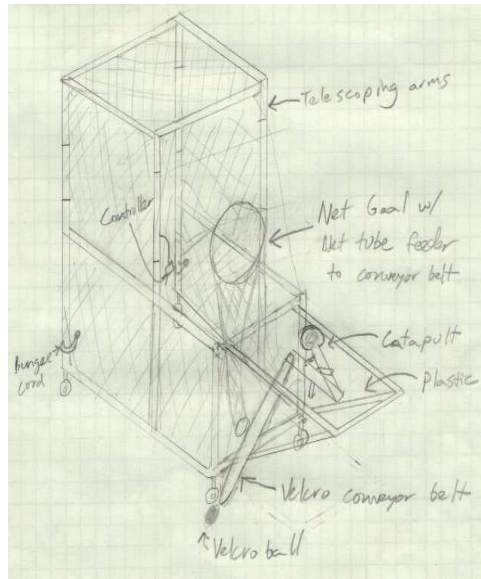 Telescoping arms
Controller
Net Goal w/
Net tube feeder
to conveyor belt
Catapult
Plastic
Bungee
cord
Velcro conveyor belt
Velcro ball